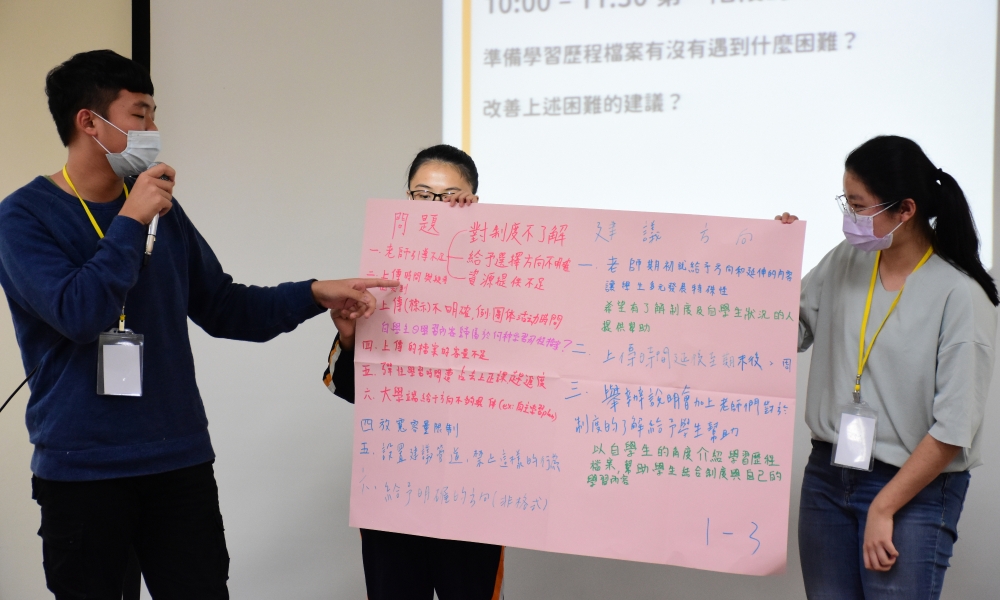 10:00 – 11:30 第一階段
準備學習歷程檔案有沒有遇到什麼困難？
改善上述困難的建議？
問題
對制度不了解
一. 老師引導不足
給予選擇方向不明確
資源提供不足
二. 上傳時間
三. 上傳(標示)不明確, 例:團體活動時間
自學生的學習內容評估於何種
四. 上傳的檔案的容量不足
五.
六. 大學端給予方向不明確
四 放寬容量限制
五、設置建議管道, 禁止這樣的
六、給予明確的方向(非格式)
建議方向
一. 老師期初就給予方向和延伸的內容
讓學生多元發展特殊性
希望有了解制度及自學生狀況的人
提供幫助
二、上傳時間延後至期末後
三、舉辦說明會加上老師們對於
制度的了解給予學生幫助
以自學生的角度介紹學習歷程
檔案, 幫助學生結合制度與自己的
學習內容
1-3